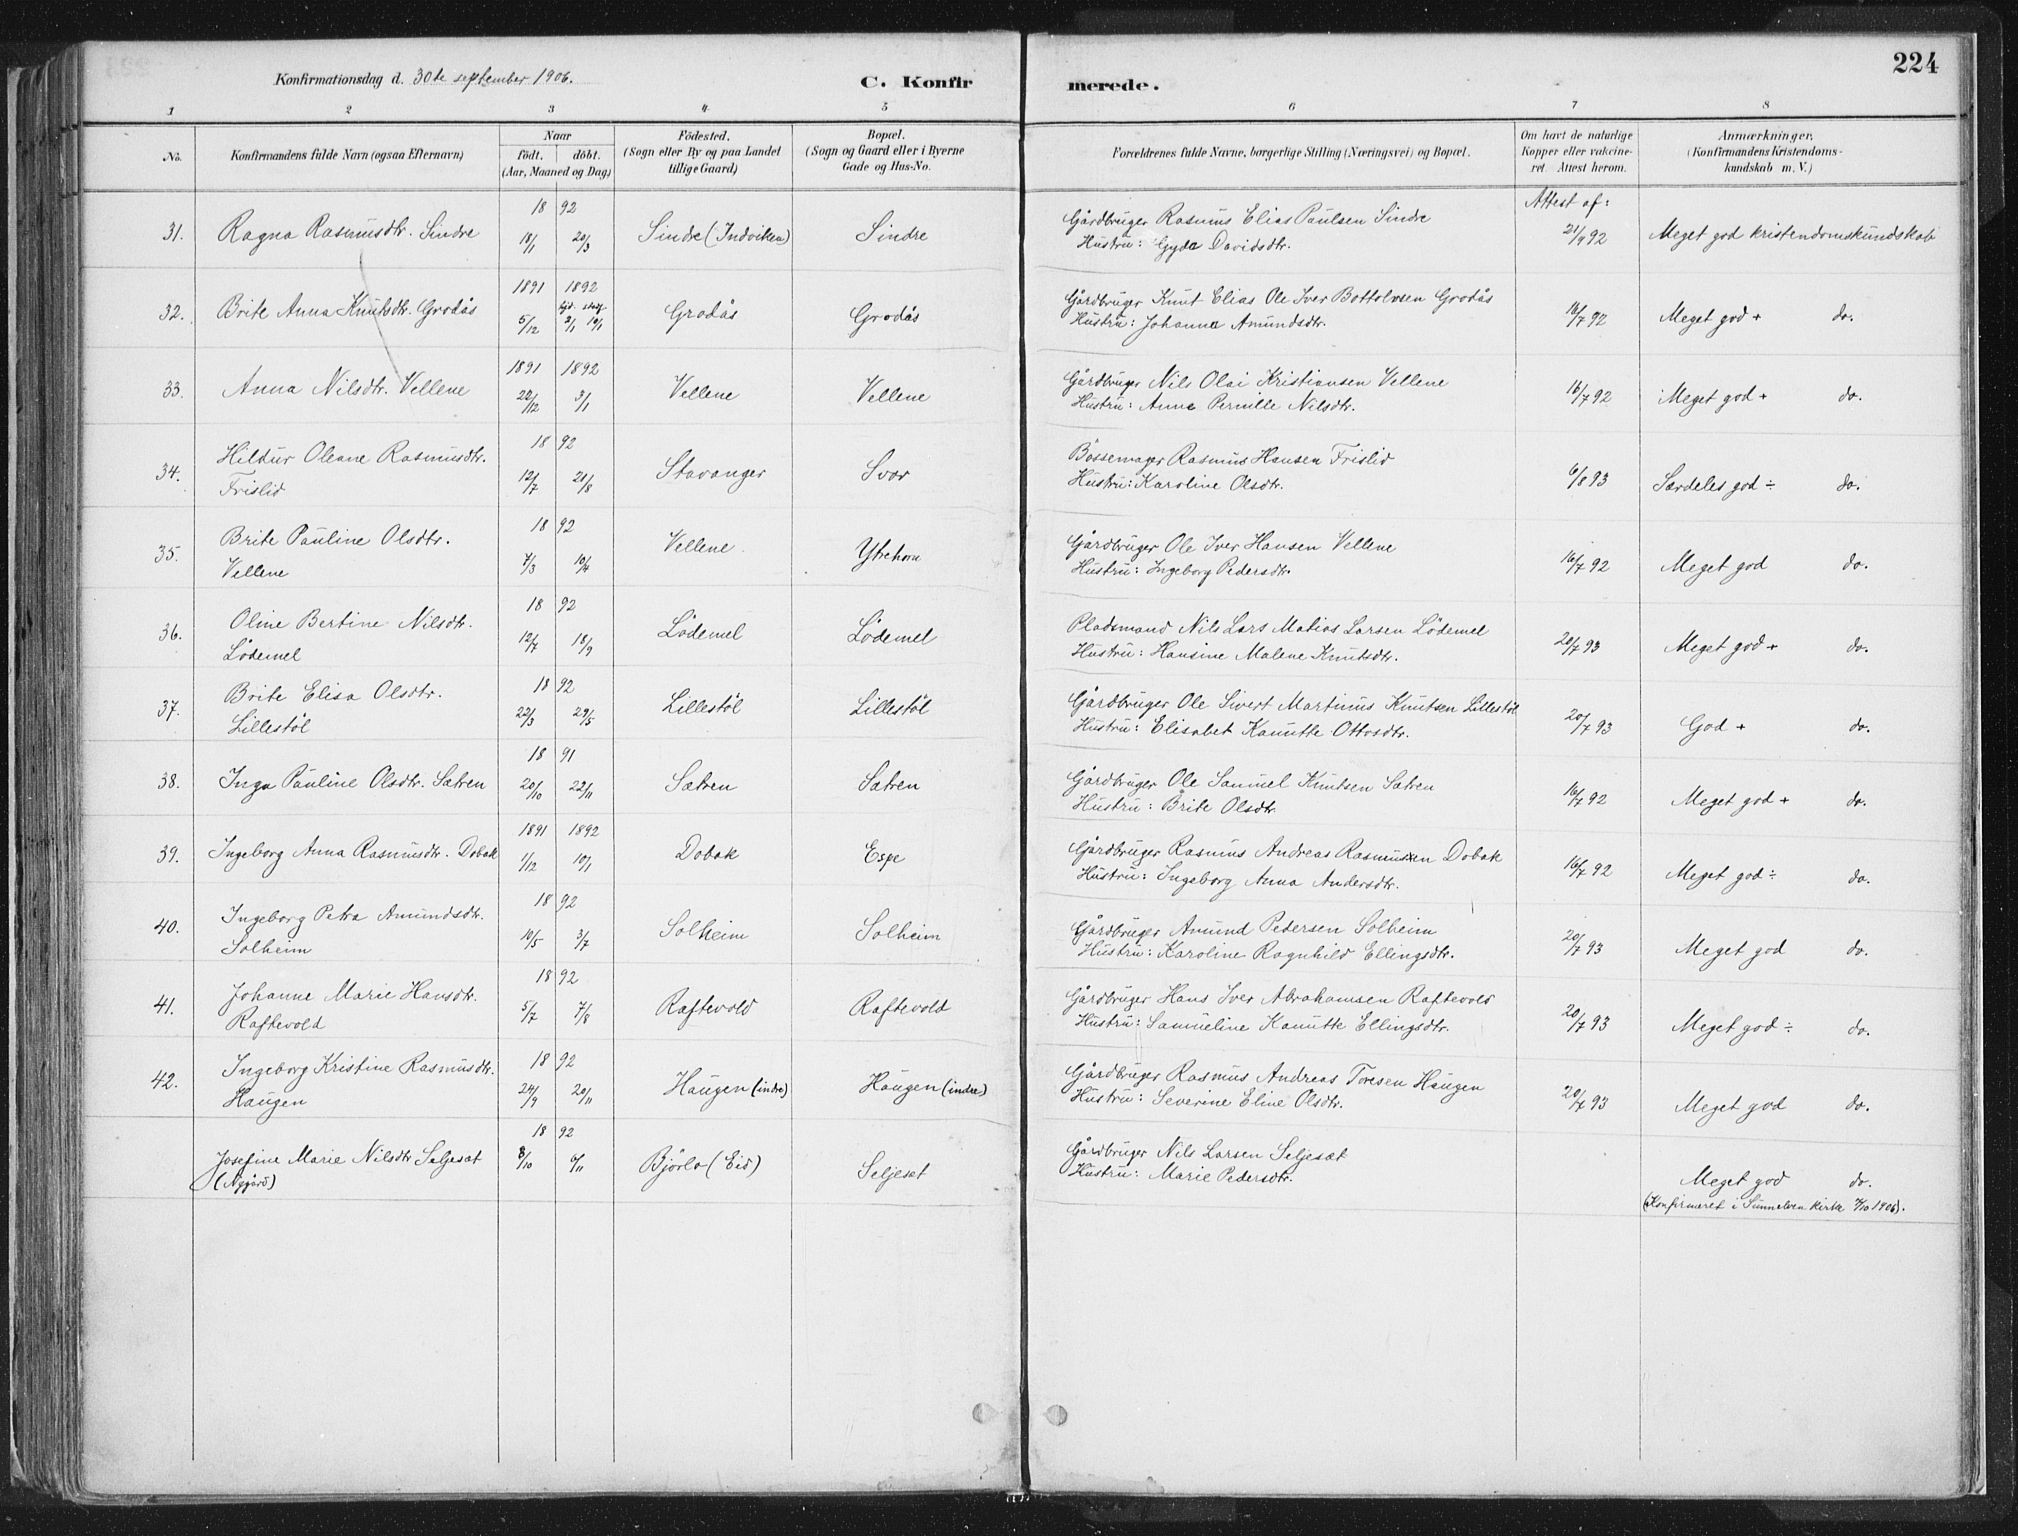 224
Konfirmationsdag d. 30te september 1906.
C. Konfirmerede.
1 2 3 4 5 6 7 8
No.
Konfirmandens fulde Navn (ogsaa Efternavn)
Naar
födt. döbt.
(Aar, Maaned og Dag)
Födested.
(Sogn eller By og paa Landet
tillige Gaard)
Bopæl.
(Sogn og Gaard eller i Byerne
Gade og Hus-No.
Forældrenes fulde Navne, borgerlige Stilling (Næringsvei) og Bopæl.
Om havt de naturlige
Kopper eller vakcine-
ret. Attest herom.
Anmærkninger.
(Konfirmandens Kristendoms-
kundskab m. V.)
Attest af:
18 92
31. Ragna Rasmusdtr. Sindre 18/1 20/3 Sindre (Indviken) Sindre
Gårdbruger Rasmus Elias Paulsen Sindre
Hustru: Gyda Davidsdtr.
21/9 92 Meget god kristendomskundskab
1891 1892
32. Brite Anna Knutsdtr. Grodås 5/12 hjd. 3/1 stadf. 19/1 Grodås Grodås
Gårdbruger Knut Elias Ole Iver Bottolvsen Grodås
Hustru: Johanna Amundsdtr.
16/7 92 Meget god + do.
1891 1892
33. Anna Nilsdtr. Vellene 22/12 3/1 Vellene Vellene
Gårdbruger Nils Olai Kristiansen Vellene
Hustru: Anna Pernille Nilsdtr.
16/7 92 Meget god + do.
18 92
34. Hildur Oleane Rasmusdtr.
Frislid 12/7 21/8 Stavanger Svor
Bössemager Rasmus Hansen Frislid
Hustru: Karoline Olsdtr.
6/8 93 Særdeles god ÷ do.
18 92
35. Brite Pauline Olsdtr.
Vellene 7/3 10/4 Vellene Ytrehorn
Gårdbruger Ole Iver Hansen Vellene
Hustru: Ingeborg Pedersdtr.
16/7 92 Meget god do.
18 92
36. Oline Bertine Nilsdtr.
Lödemel 12/7 18/9 Lödemel Lödemel
Pladsmand Nils Lars Matias Larsen Lödemel
Hustru: Hansine Malene Knutsdtr.
20/7 93 Meget god + do.
18 92
37. Brite Elisa Olsdtr.
Lillestöl 22/3 29/5 Lillestöl Lillestöl
Gårdbruger Ole Sivert Martinus Knutsen Lillestöl
Hustru: Elisabet Kanutte Ottosdtr.
20/7 93 God + do.
18 91
38. Inga Pauline Olsdtr. Sætren 20/10 22/11 Sætren Sætren
Gårdbruger Ole Samuel Knutsen Sætren
Hustru: Brite Olsdtr.
16/7 92 Meget god + do.
1891 1892
39. Ingeborg Anna Rasmusdtr. Dobak 1/12 10/1 Dobak Espe
Gårdbruger Rasmus Andreas Rasmussen Dobak
Hustru: Ingeborg Anna Andersdtr.
16/7 92 Meget god ÷ do.
18 92
40. Ingeborg Petra Amundsdtr.
Solheim 10/5 3/7 Solheim Solheim
Gårdbruger Amund Pedersen Solheim
Hustru: Karoline Ragnhild Ellingsdtr.
20/7 93 Meget god do.
18 92
41. Johanne Marie Hansdtr.
Raftevold 5/7 7/8 Raftevold Raftevold
Gårdbruger Hans Iver Abrahamsen Raftevold
Hustru: Samueline Kanutte Ellingsdtr.
20/7 93 Meget god ÷ do.
18 92
42. Ingeborg Kristine Rasmusdtr.
Haugen 24/9 20/11 Haugen (indre) Haugen (indre)
Gårdbruger Rasmus Andreas Toresen Haugen
Hustru: Severine Eline Olsdtr.
20/7 93 Meget god do.
18 92
Josefine Marie Nilsdtr Seljeset
(Nygård) 8/10 6/11 Björlo (Eid) Seljeset
Gårdbruger Nils Larsen Seljeset
Hustru: Marie Pedersdtr.
Meget god do.
(Konfirmeret i Sunnelven kirke 7/10 1906).